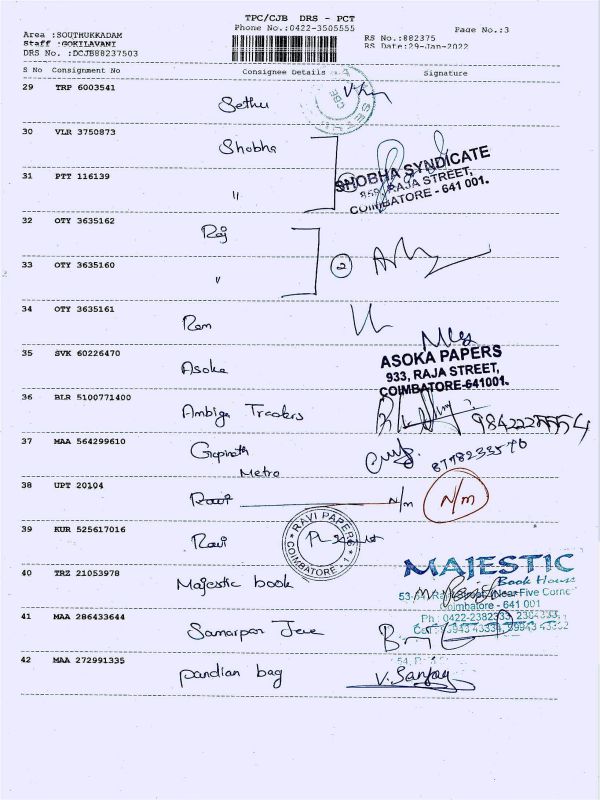 TPC/CJB DRS - PCT
Phone No.:0422-3505555
Page No.:3
Area :SOUTHUKKADAM
Staff :GOKILAVANI
DRS No. :DCJB88237503
RS No.:882375
RS Date:29-Jan-2022
S No Consignment No Consignee Details Signature
29 TRP 6003541 Sethu
30 VLR 3750873 Shobha
31 PTT 116139 "
SHOBHA SYNDICATE
RAJA STREET,
COIMBATORE - 641 001.
32 OTY 3635162 Raj
33 OTY 3635160 " 2
34 OTY 3635161 Ram
35 SVK 60226470 Asoka
ASOKA PAPERS
933, RAJA STREET,
COIMBATORE-641001.
36 BLR 5100771400 Ambiga Traders
37 MAA 564299610 Gopinath
Metro
38 UPT 20104 Ravi N/m N/m
39 KUR 525617016 Ravi
RAVI PAPERS
COIMBATORE - 1
40 TRZ 21053978 Majestic book
MAJESTIC
Book House
Near Five Corne
Coimbatore - 641 001
Ph : 0422-2382333,
41 MAA 286433644 Samarpan Jene
42 MAA 272991335 pandian bag V. Sanjay